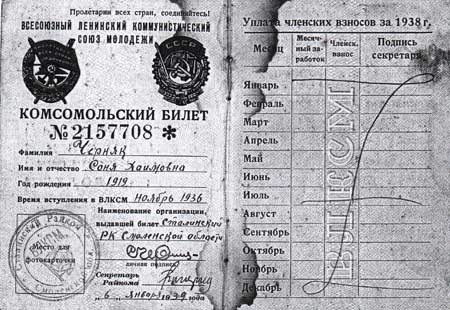 Пролетарии всех стран, соединяйтесь!
ВСЕСОЮЗНЫЙ ЛЕНИНСКИЙ КОММУНИСТИЧЕСКИЙ
СОЮЗ МОЛОДЕЖИ
СССР
КОМСОМОЛЬСКИЙ БИЛЕТ
№ 2157708 *
Фамилия Черняк
Имя и отчество Соня Хаимовна
Год рождения 1919
Время вступления в ВЛКСМ ноябрь 1936
Наименование организации,
выдавшей билет Сталинский
РК Смоленской области
Место для
фотокарточки
личная подпись
Секретарь
Райкома
"6 января 1939 года
Уплата членских взносов за 1938 г.
Месяц
Месяч-
ный за-
работок
Членск.
взнос
Подпись
секретаря
Январь
Февраль
Март
Апрель
Май
Июнь
Июль
Август
Сентябрь
Октябрь
Ноябрь
Декабрь
ВЛКСМ